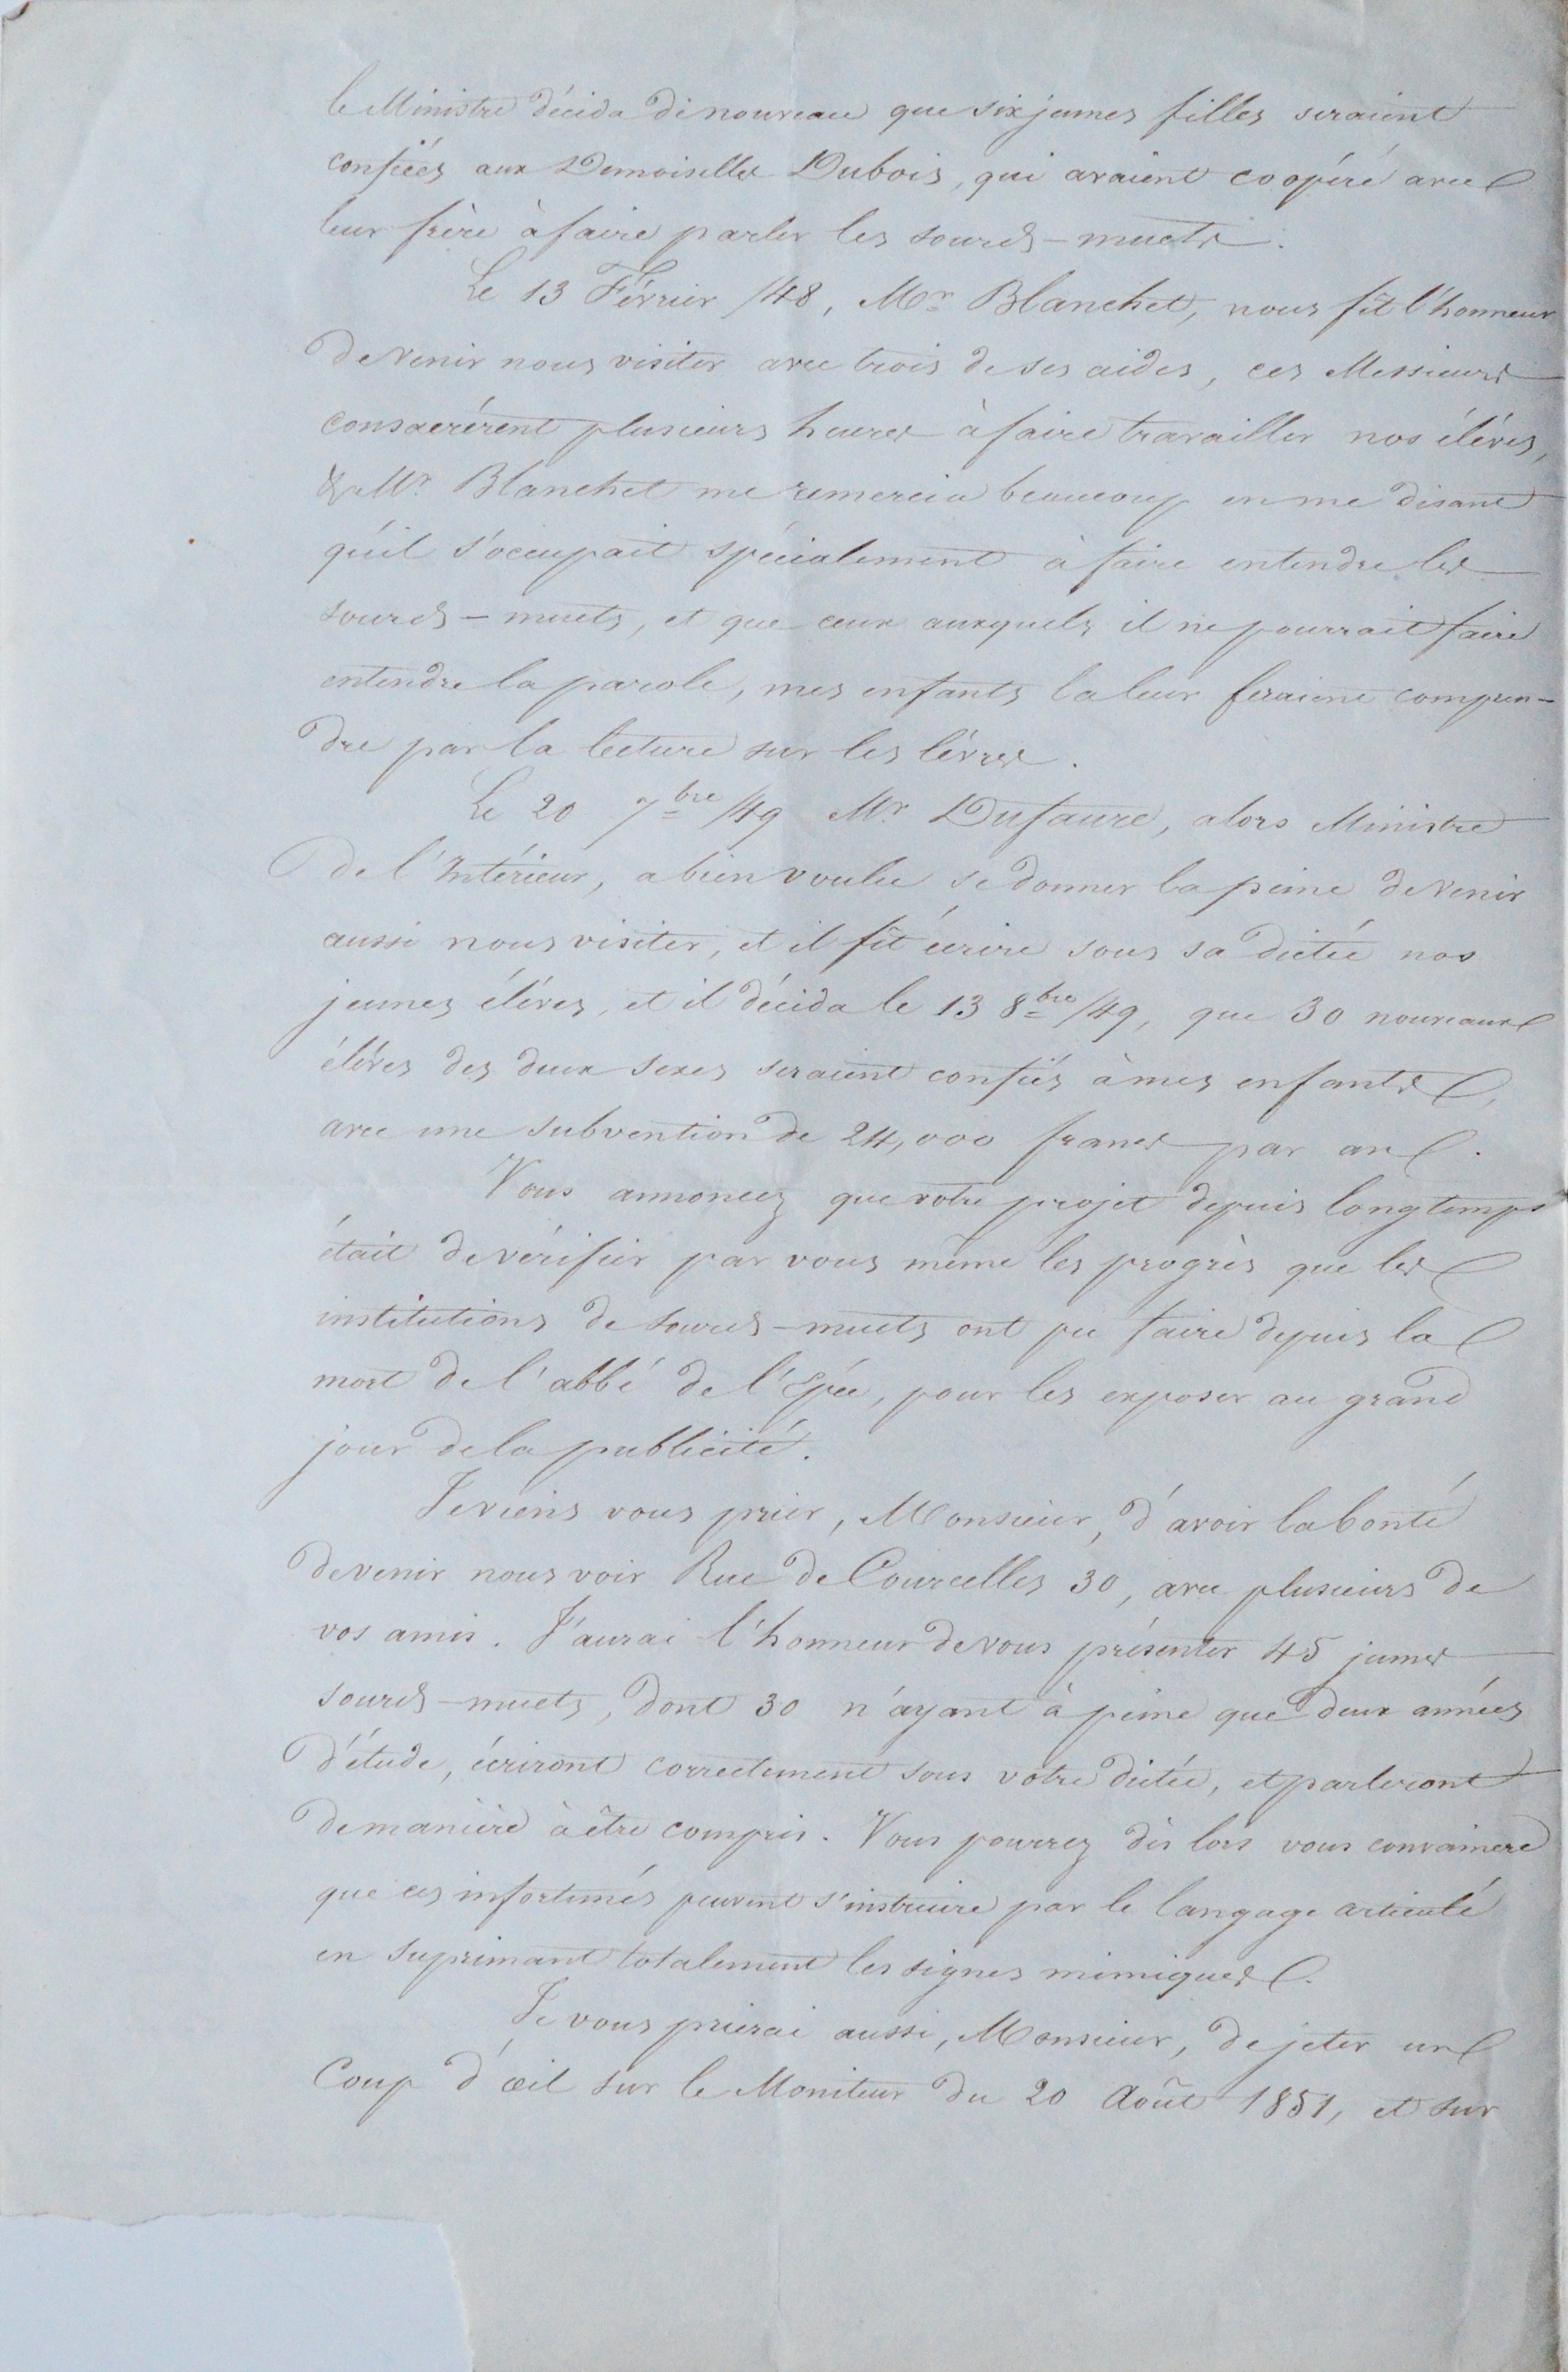 le Ministre décida de nouveau que six jeunes filles seraient
confiées aux Demoiselles Dubois, qui avaient coopéré avec
leur frère à faire parler les sourds-muets.
Le 13 Février /48, Mr Blanchet, nous fît l'honneur
de venir nous visiter avec trois de ses aides, ces Messieurs
consacrérent plusieurs heures à faire travailler nos éléves,
& Mr Blanchet me remercia beaucoup en me disant
qu'il s'occupait spécialement à faire entendre les
sourds-muets, et que ceux auxquels il ne pourrait faire
entendre la parole, mes enfants la leur feraient compren-
dre par la lecture sur les lévres.
Le 20 7bre /49 Mr Dufaure, alors Ministre
de l'Intérieur, a bien voulu se donner la peine de venir
aussi nous visiter, et il fît écrire sous sa dictée nos
jeunes éléves, et il décida le 13 8bre /49, que 30 nouveaux
éléves des deux sexes seraient confiés à mes enfants,
avec une subvention de 24,000 francs par an.
Vous annoncez que votre projet depuis longtemps
était de vérifier par vous même les progrès que les
institutions de sourds-muets ont pu faire depuis la
mort de l'abbé de l'Epée, pour les exposer au grand
jour de la publicité.
Je viens vous prier, Monsieur, d'avoir la bonté
de venir nous voir Rue de Courcelles 30, avec plusieurs de
vos amis. J'aurai l'honneur de vous présenter 45 jeunes
sourds-muets, dont 30 n'ayant à peine que deux années
d'étude, écriront correctement sous votre dictée, et parleront
de manière à être compris. Vous pourrez dès lors vous convaincre
que ces infortunés peuvent s'instruire par le langage articulé
en suprimant totalement les signes mimiques.
Je vous prierai aussi, Monsieur, de jeter un
Coup d'œil sur le Moniteur du 20 Août 1851, et sur